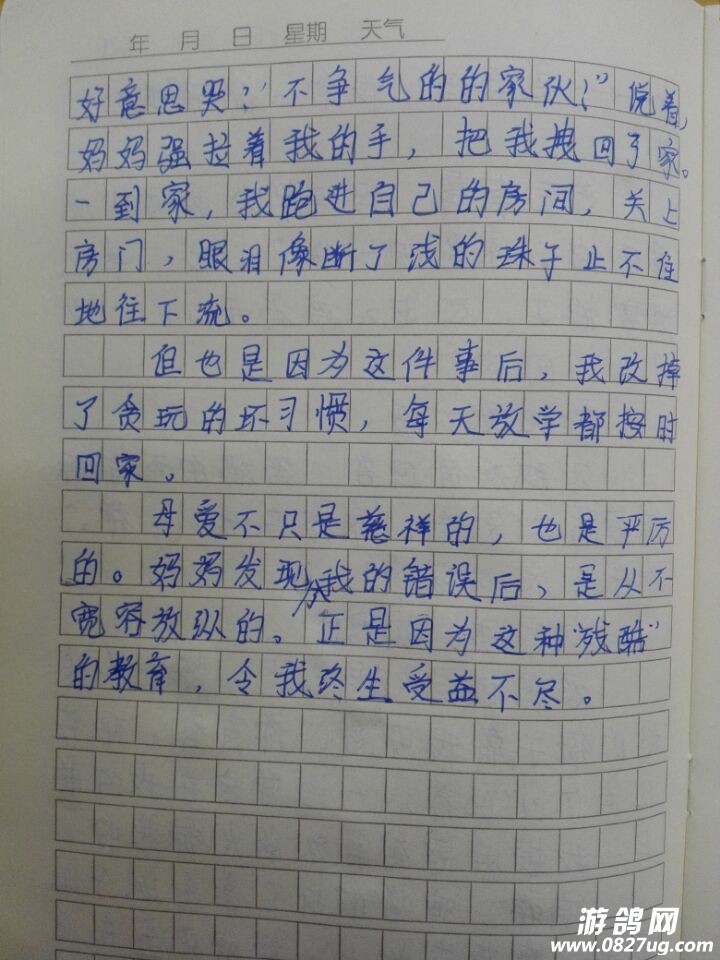 年 月 日 星期 天气
好意思哭?"不争气的的家伙!"说着,
妈妈强拉着我的手,把我拽回了家。
一到家,我跑进自己的房间,关上
房门,眼泪像断了浅的珠子止不住
地往下流。
但也是因为这件事后,我改掉
了贪玩的坏习惯,每天放学都按时
回家。
母爱不只是慈祥的,也是严厉
的。妈妈发现我的错误后,是从不
宽容放纵的。正是因为这种"残酷"
的教育,令我终生受益不尽。
游鸽网
www.0827ug.com